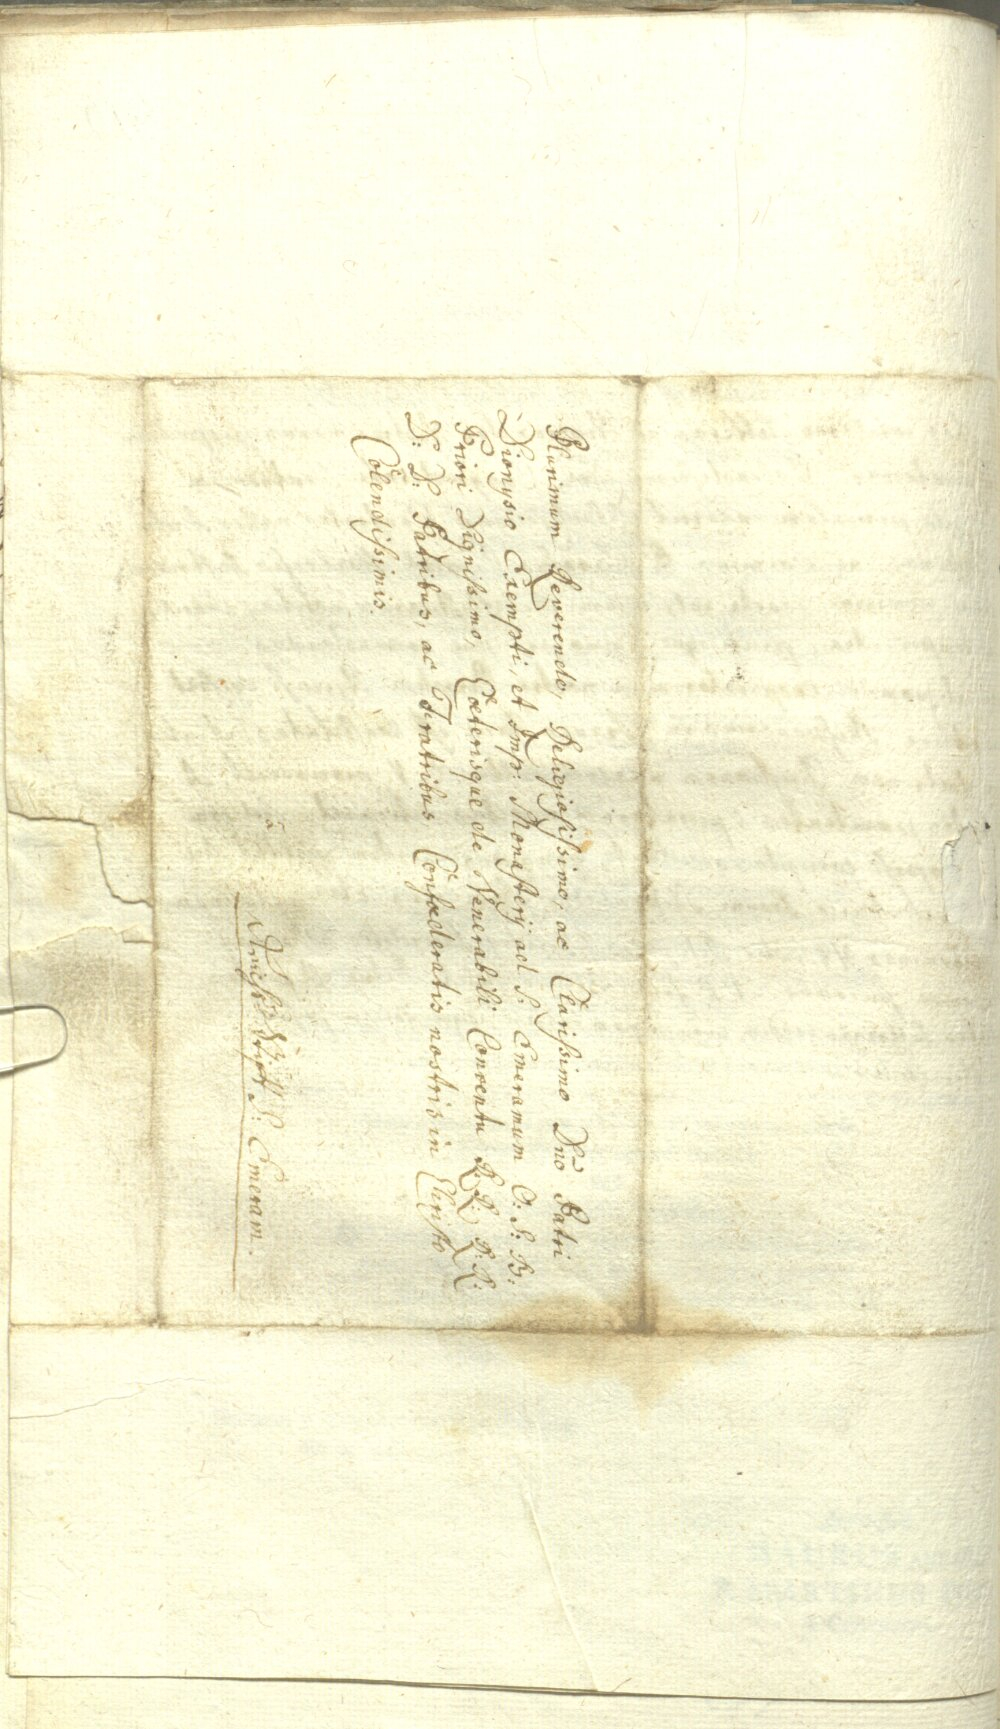 Plurimum Reverendo, Religiosissimo, ac Clarissimo Dño Patri
Dionysio Exempti, et Imp: Monasterij ad S: Emeramum O: S: B:
Priori Dignissimo, Cœterisque de Venerabili Conventu R: R: P: P:
D: D: Patribus, ac Fratribus Confœderatis nostris in Christo
Colendissimis.
à
S: Emeram.